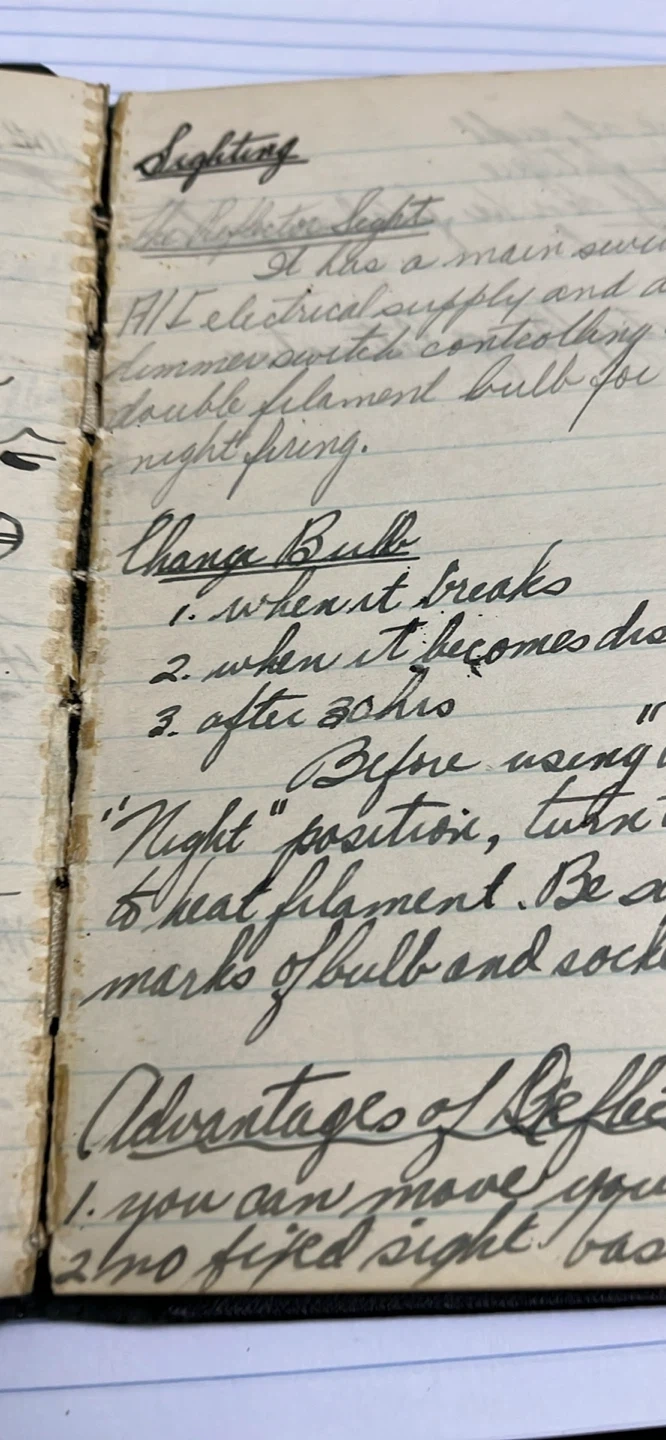 Sighting
The Reflector Sight
It has a main
A/C electrical supply and a
dimmer switch controlling
double filament bulb for
night firing.
Change Bulb
1. when it breaks
2. when it becomes dis
3. after 30hrs
Before using "
"Night" position, turn
to heat filament. Be
marks of bulb and socke
Advantages of Reflec
1. you can move you
2 no fixed sight bas